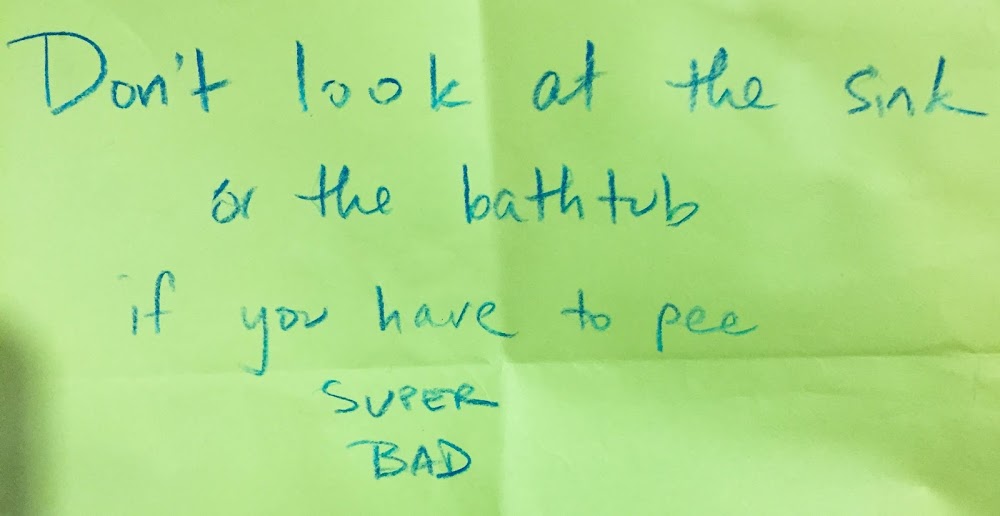 Don't look at the sink
or the bathtub
if you have to pee
SUPER
BAD